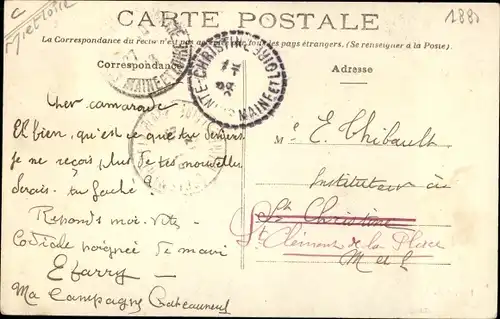 1880
CARTE POSTALE
La Correspondance du recto n'est pas
tous les pays étrangers. (Se renseigner à la Poste).
Correspondance
Adresse
STE CHRISTINE
MAINE ET LOIRE
MAINE ET LOIRE
Cher camarade
Eh bien, qu'est ce que tu deviens
je ne reçois plus de tes nouvelles
serais-tu faché
Reponds moi vite
Cordiale poignée de main
E Farry
Ma Campagne Chateauneuf
M E. Thibault
Instituteur à
Ste Christine
St Clément de la Place
M et L